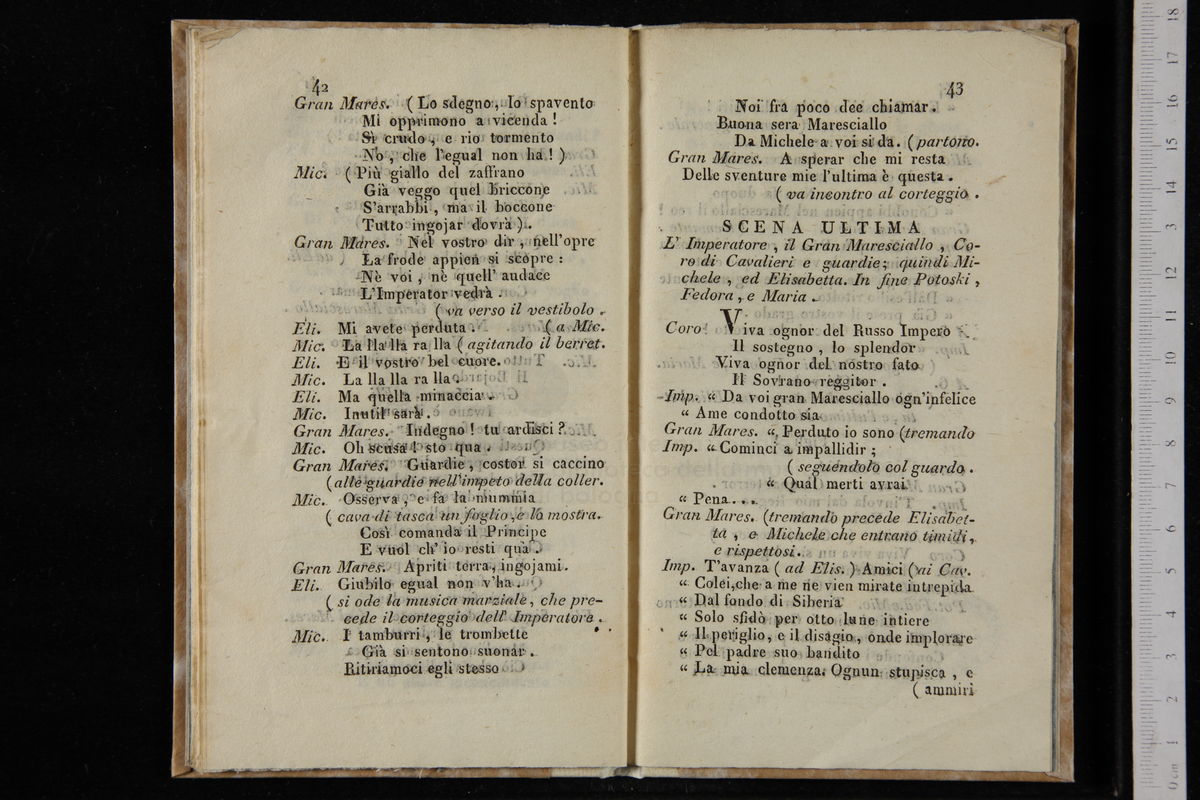 42
Gran Mares. ( Lo sdegno, lo spavento
Mi opprimono a vicenda !
Sì crudo, e rio tormento
No, che l'egual non ha ! )
Mic. ( Più giallo del zaffrano
Già veggo quel briccone
S'arrabbi, ma il boccone
Tutto ingojar dovrà ).
Gran Mares. Nel vostro dir, nell'opre
La frode appien si scopre :
Nè voi, nè quell' audace
L'Imperator vedrà .
( va verso il vestibolo .
Eli. Mi avete perduta . ( a Mic.
Mic. La lla lla ra lla ( agitando il berret.
Eli. E il vostro bel cuore.
Mic. La lla lla ra lla .
Eli. Ma quella minaccia .
Mic. Inutil sarà .
Gran Mares. Indegno ! tu ardisci ?
Mic. Oh scusa ! sto qua .
Gran Mares. Guardie, costor si caccino
( alle guardie nell'impeto della coller.
Mic. Osserva, e fa la mummia
( cava di tasca un foglio, e lo mostra.
Così comanda il Principe
E vuol ch' io resti qua .
Gran Mares. Apriti terra, ingojami.
Eli. Giubilo egual non v'ha .
( si ode la musica marziale, che pre-
cede il corteggio dell' Imperatore .
Mic. I tamburri, le trombette
Già si sentono suonar .
Ritiriamoci egli stesso
43
Noi fra poco dee chiamar .
Buona sera Maresciallo
Da Michele a voi si da. ( partono.
Gran Mares. A sperar che mi resta
Delle sventure mie l'ultima è questa .
( va incontro al corteggio .
SCENA ULTIMA
L' Imperatore, il Gran Maresciallo, Co-
ro di Cavalieri e guardie; quindi Mi-
chele, ed Elisabetta. In fine Potoski,
Fedora, e Maria .
Coro Viva ognor del Russo Impero
Il sostegno, lo splendor
Viva ognor del nostro fato
Il Sovrano reggitor .
Imp. “ Da voi gran Maresciallo ogn'infelice
“ Ame condotto sia
Gran Mares. “ Perduto io sono (tremando
Imp. “ Cominci a impallidir ;
( seguendolo col guardo .
“ Qual merti avrai
“ Pena . . .
Gran Mares. (tremando precede Elisabet-
ta, e Michele che entrano timidi,
e rispettosi .
Imp. T'avanza ( ad Elis. ) Amici ( ai Cav.
“ Colei, che a me ne vien mirate intrepida
“ Dal fondo di Siberia
“ Solo sfidò per otto lune intiere
“ Il periglio, e il disagio, onde implorare
“ Pel padre suo bandito
“ La mia clemenza. Ognun stupisca, e
( ammiri
0 cm 1 2 3 4 5 6 7 8 9 10 11 12 13 14 15 16 17 18